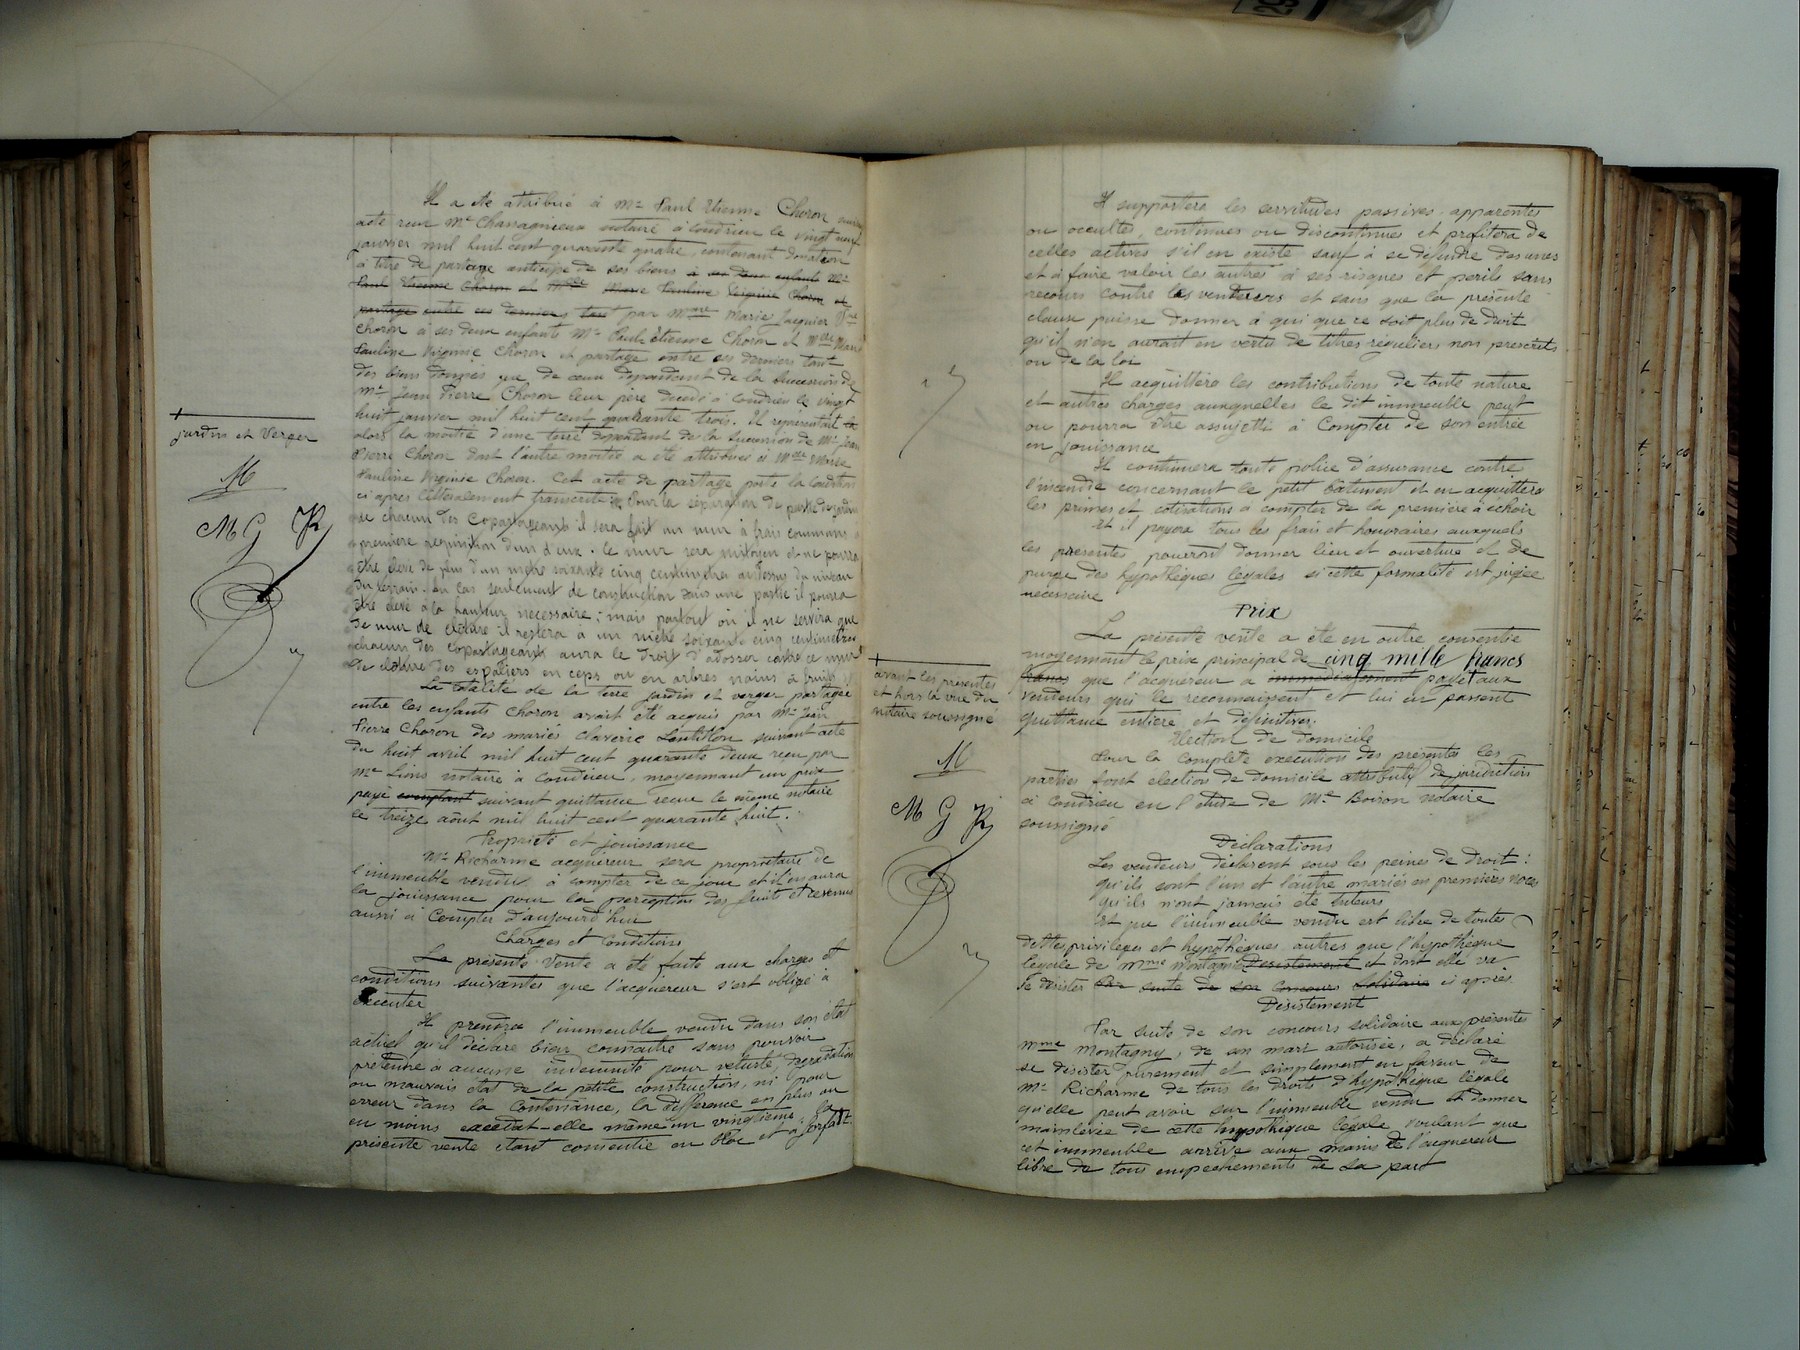 Il a été attribué à Mr Paul Etienne Choron suivant
acte reçu Me Chavagnieux notaire à Condrieu le vingt neuf
janvier mil huit cent quarante quatre, contenant donation
à titre de partage anticipé de ses biens à ses deux enfants Mr
Paul Etienne Choron et Marie Pauline Virginie Choron et
partage entre ces derniers tant par Mme Marie Jacquier Vve
Choron à ses deux enfants Mr Paul étienne Choron et Mlle Marie
Pauline Virginie Choron et partage entre ces derniers tant
des biens donnés que de ceux dépendant de la succession de
Mr Jean Pierre Choron leur père décédé à Condrieu le vingt
huit janvier mil huit cent quarante trois. Il représentait la
alors la moitié d'une terre dépendant de la succession de Mr Jean
Pierre Choron dont l'autre moitié a été attribuée à Mlle Marie
Pauline Virginie Choron. Cet acte de partage porte la Condition
ci après littéralement transcrite Pour la séparation de partie de jardin
de chacun des Copartageants il sera fait un mur à frais communs à
première réquisition d'un d'eux. Ce mur sera mitoyen et ne pourra
être élevé de plus d'un mètre soixante cinq centimètres au dessus du niveau
du terrain. en cas seulement de construction dans une partie il pourra
être élevé à la hauteur nécessaire ; mais partout où il ne servira que
de mur de clôture il restera à un mètre soixante cinq centimètres
chacun des copartageants aura le droit d'adosser contre ce mur
de clôture des espaliers en ceps ou en arbres nains à fruits
La totalité de la terre jardin et verger partagée
entre les enfants Choron avait été acquis par Mr Jean
Pierre Choron des mariés Claverie Lentillon suivant acte
du huit avril mil huit cent quarante deux reçu par
Me Lions notaire à Condrieu, moyennant un prix
payé comptant suivant quittance reçue le même notaire
le treize août mil huit cent quarante huit.
Propriété et jouissance
Mr Richarme acquéreur sera propriétaire de
l'immeuble vendu à compter de ce jour et il en aura
la jouissance pour la perception des fruits et revenus
aussi à Compter d'aujourd'hui
Charges et Conditions
La présente Vente a été faite aux charges et
conditions suivantes que l'acquéreur s'est obligé à
éxécuter
Il prendra l'immeuble vendu dans son état
actuel qu'il déclare bien connaître sans pouvoir
prétendre à aucune indemnité pour vétusté, dégradation
ou mauvais état de la petite construction, ni pour
erreur dans la Contenance, la différence en plus ou
en moins excédat-elle même un vingtième, la
présente vente étant consentie en bloc et à forfait.
jardin et Verger
M
MG JR
Il supportera les servitudes passives apparentes
ou occultes, continues ou discontinues et profitera de
celles actives s'il en existe sauf à se défendre des unes
et à faire valoir les autres à ses risques et périls sans
recours contre les vendeurs et sans que la présente
clause puisse donner à qui que ce soit plus de droit
qu'il n'en aurait en vertu de titres réguliers non prescrits
ou de la loi
Il acquittera les contributions de toute nature
et autres charges auxquelles le dit immeuble peut
ou pourra être assujetti à Compter de son entrée
en jouissance
Il continuera toute police d'assurance contre
l'incendie concernant le petit bâtiment et en acquittera
les primes et cotisations à compter de la première à échoir
Et il payera tous les frais et honoraires auxquels
les présentes pourront donner lieu et ouverture et de
purge des hypothèques légales si cette formalité est jugée
nécessaire
Prix
La présente vente a été en outre consentie
moyennant le prix principal de cinq mille francs
francs que l'acquéreur a immédiatement payé aux
vendeurs qui le reconnaissent et lui en passent
quittance entière et définitive.
Election de domicile
Pour la complète exécution des présentes les
parties font election de domicile attributif de juridiction
à Condrieu en l'étude de Me Boiron notaire
soussigné
Déclarations
Les vendeurs déclarent sous les peines de droit :
qu'ils sont l'un et l'autre mariés en premières noces
qu'ils n'ont jamais été tuteurs
Et que l'immeuble vendu est libre de toutes
dettes privilèges et hypothèques autres que l'hypothèque
légale de Mme Montagny Desistement et dont elle va
se désister Par suite de son Concours Solidaire ci après.
Désistement
Par suite de son concours solidaire aux présentes
Mme Montagny, de son mari autorisée, a déclaré
se désister purement et simplement en faveur de
Mr Richarme de tous les droits d'hypothèque légale
qu'elle peut avoir sur l'immeuble vendu et donner
mainlevée de cette hypothèque légale voulant que
cet immeuble arrive aux mains de l'acquéreur
libre de tous empêchements de la part
avant les présentes
et hors la vue du
notaire soussigné
M
M G JR